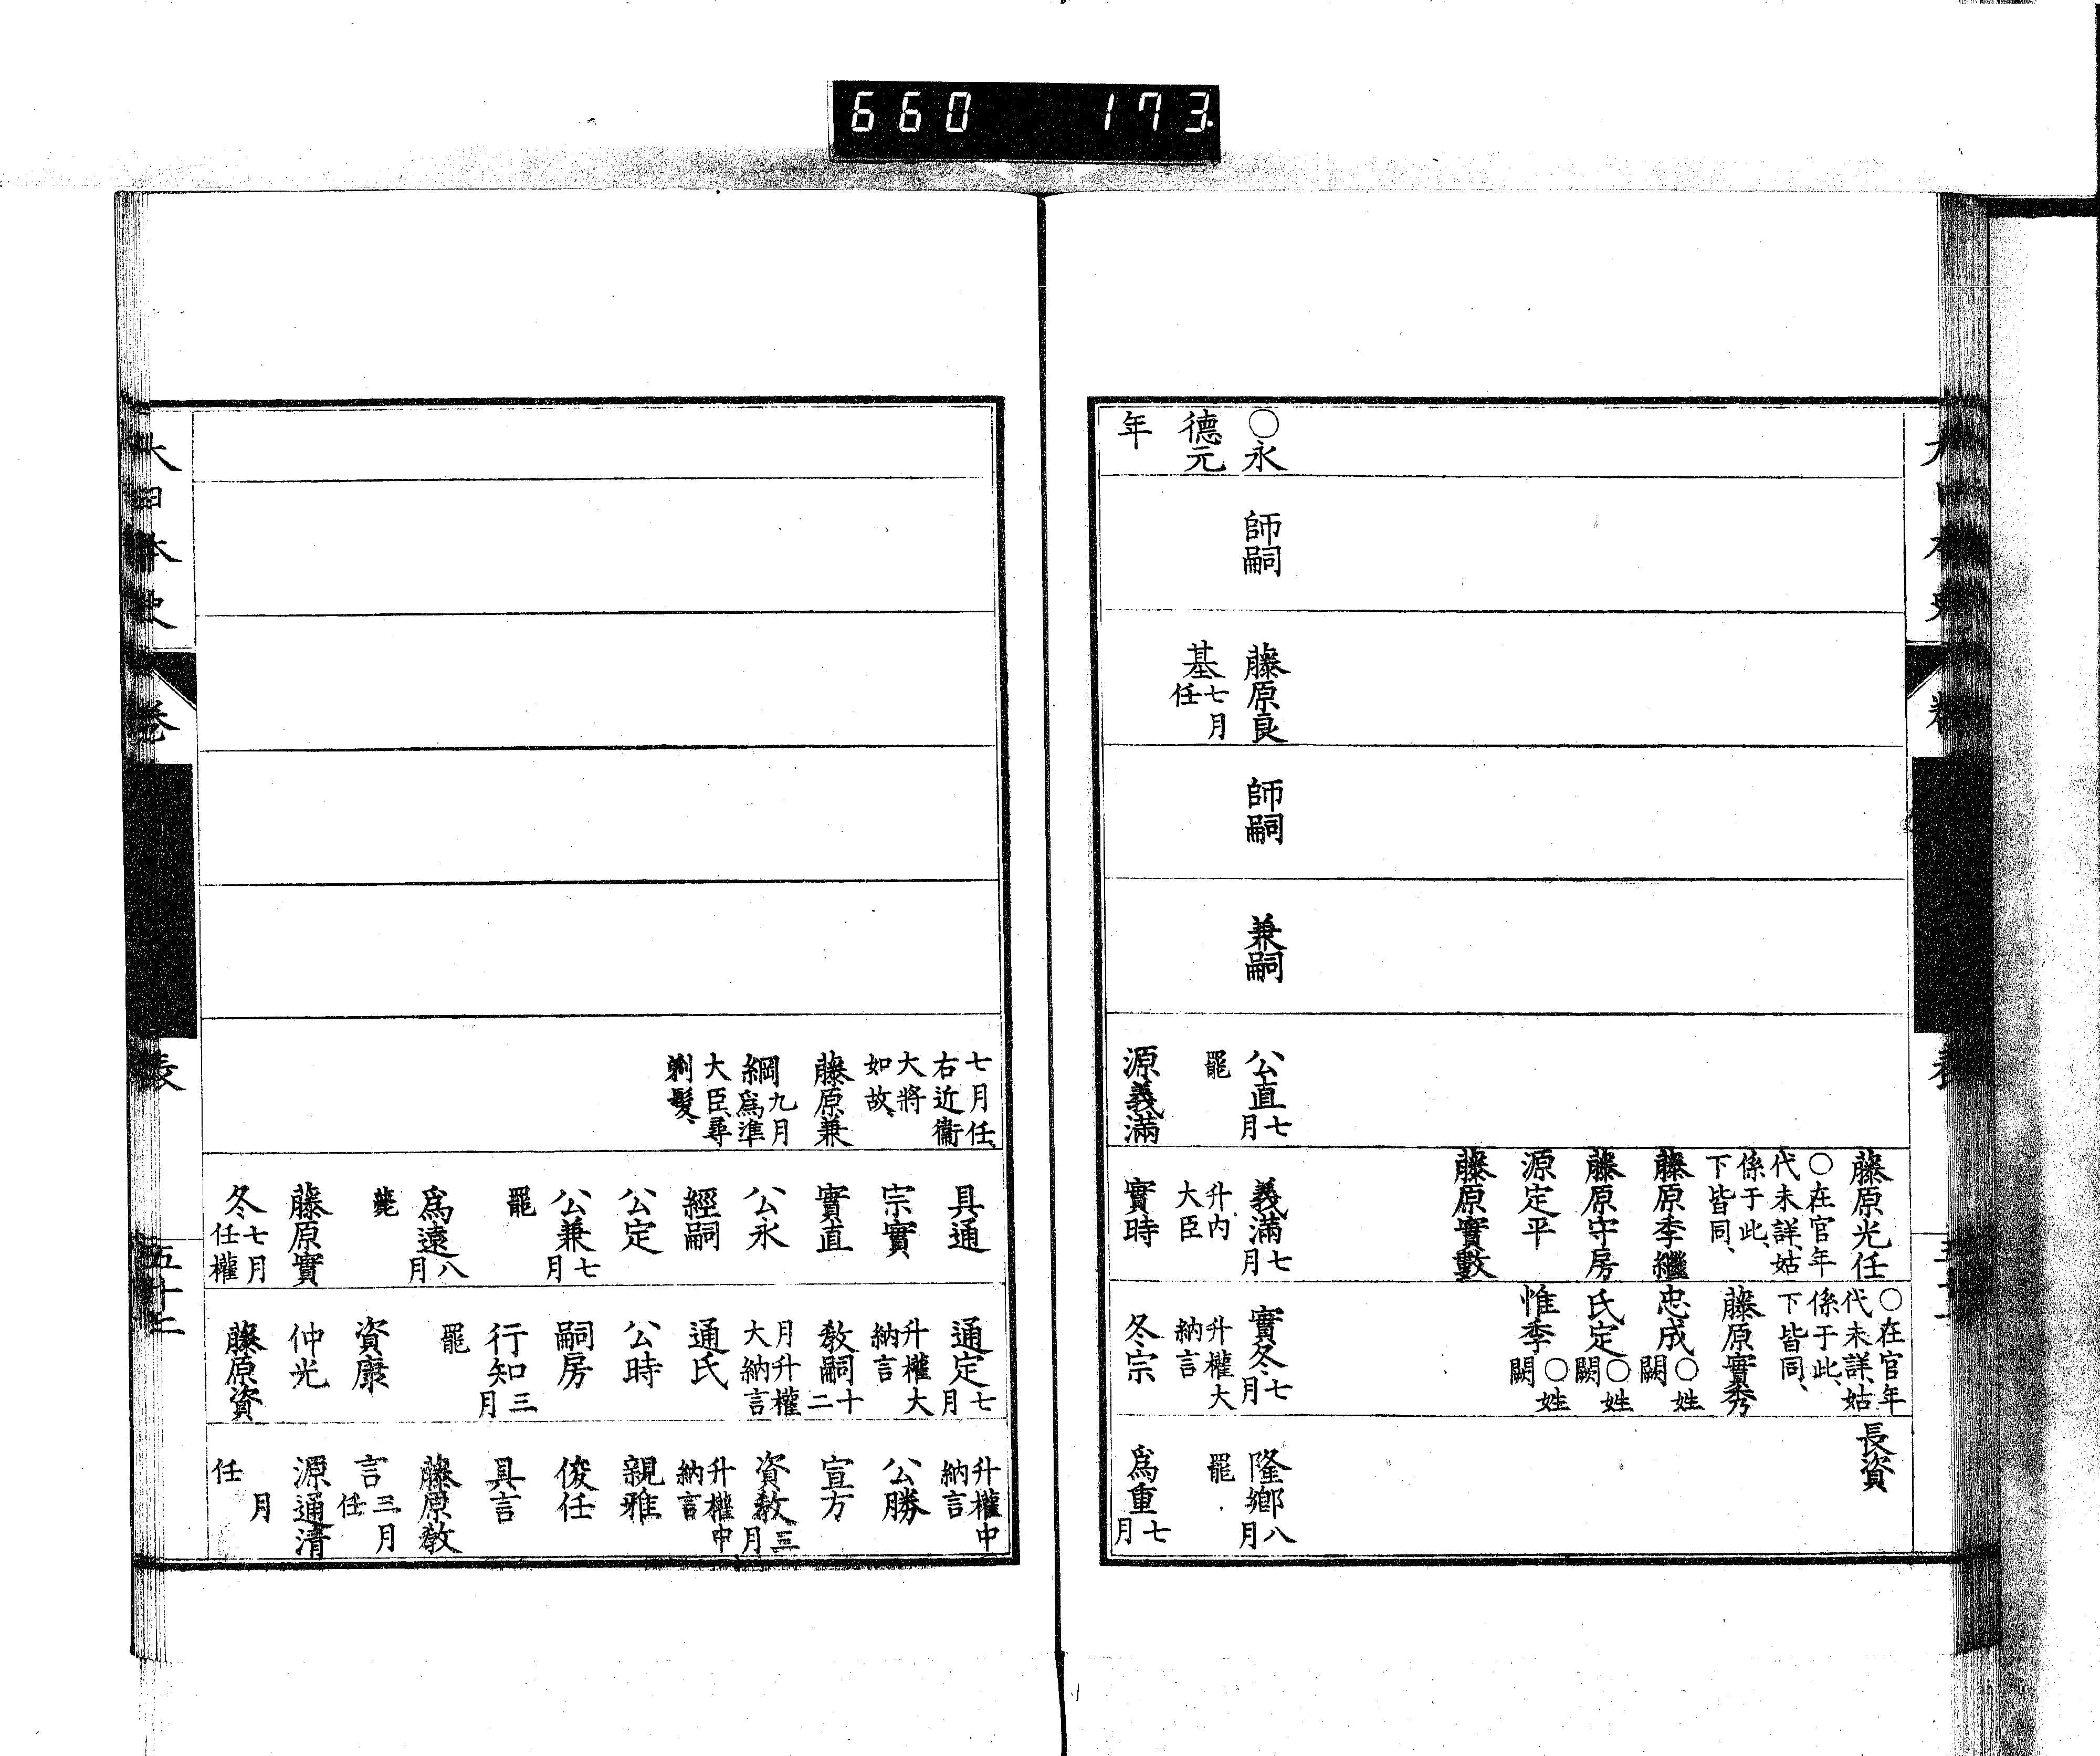 660 173
藤原光任
○在官年
代未詳、姑
係于此、
下皆同、
藤原季繼
藤原守房
源定平
藤原實數
○在官年
代未詳、姑
係于此、
下皆同、
藤原實秀
忠成○姓闕
氏定○姓闕
惟季○姓闕
長資
○永
德元
年
師嗣
藤原良
基七月任
師嗣
兼嗣
公直七月
罷
源義滿
義滿七月
升內大臣
實時
實冬七月
升權大納言
冬宗
隆鄉八月
罷
爲重七月
七月任、
右近衞
大將
如故、
藤原兼
綱九月爲準
大臣、尋
剃髮、
具通
宗實
實直
公永
經嗣
公定
公兼七月
罷
爲遠八月
薨
藤原實
冬七月任權
通定七月
升權大納言
敎嗣十二
月升權大納言
通氏
公時
嗣房
行知三月
罷
資康
仲光
藤原資
升權中納言
公勝
宣方
資敎三月
升權中納言
親雅
俊任
具言
藤原敎
言三月任
源通清
月任
大日本史
卷
表
五十二